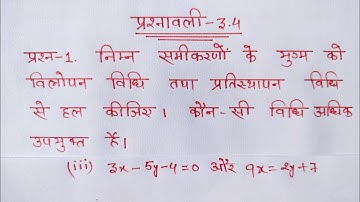 प्रश्नावली-3.4
प्रश्न-1. निम्न समीकरणों के युग्म को
विलोपन विधि तथा प्रतिस्थापन विधि
से हल कीजिए। कौन-सी विधि अधिक
उपयुक्त है।
(iii) 3x-5y-4=0 और 9x=2y+7